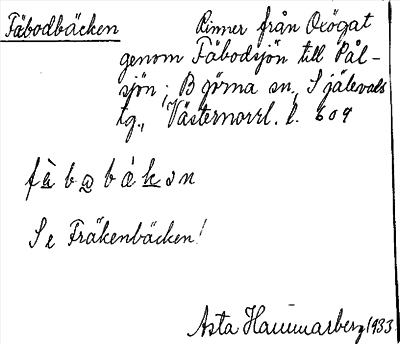 Fäbodbäcken Rinner från Oxögat
genom Fäbodsjön till Pål-
sjön; Björna sn, Själevads
tg., Västernorrl. l. 609
fä̀bɷbákən
Se Fräkenbäcken!
Asta Hammarberg 1933